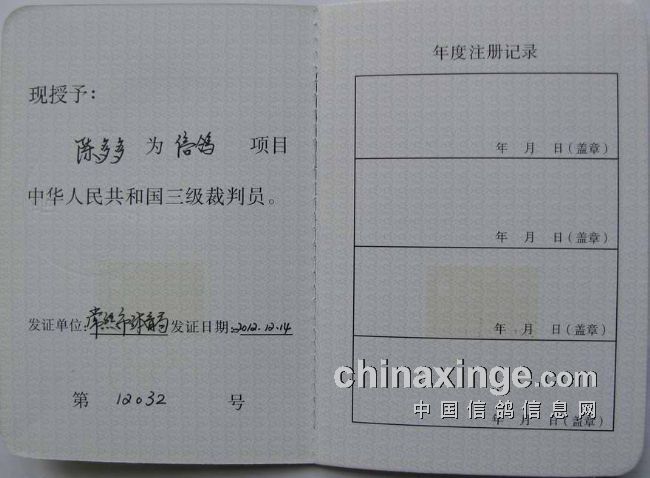 现授予：
陈多多 为 信鸽 项目
中华人民共和国三级裁判员。
发证单位: 常熟市体育局 发证日期: 2012.12.14
第 12032 号
年度注册记录
年 月 日(盖章)
年 月 日(盖章)
年 月 日(盖章)
年 月 日(盖章)
chinaxinge.com
中国信鸽信息网